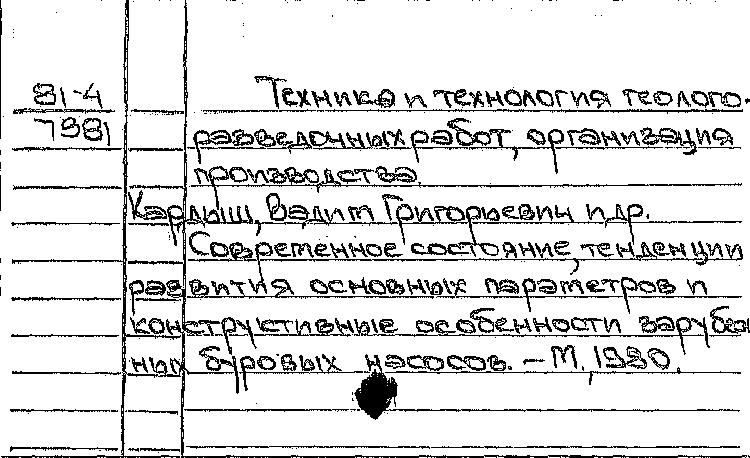 81-4
7981
Техника и технология геолого-
разведочных работ, организация
производства.
Кардыш, Вадим Григорьевич и др.
Современное состояние, тенденции
развития основных параметров и
конструктивные особенности зарубеж
ных буровых насосов. – М., 1980.